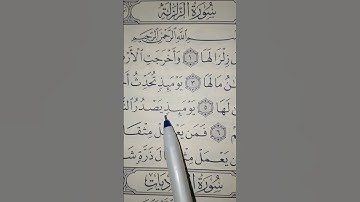 سُورَةُ الزَّلْزَلَةِ
بِسْمِ اللَّهِ الرَّحْمَٰنِ الرَّحِيمِ
زِلْزَالَهَا ١ وَأَخْرَجَتِ الْأَرْ
مَا لَهَا ٣ يَوْمَئِذٍ تُحَدِّثُ أَ
لَهَا ٥ يَوْمَئِذٍ يَصْدُرُ ال
٦ فَمَن يَعْمَلْ مِثْقَا
ن يَعْمَلْ مِثْقَالَ ذَرَّةٍ شَ
سُورَةُ